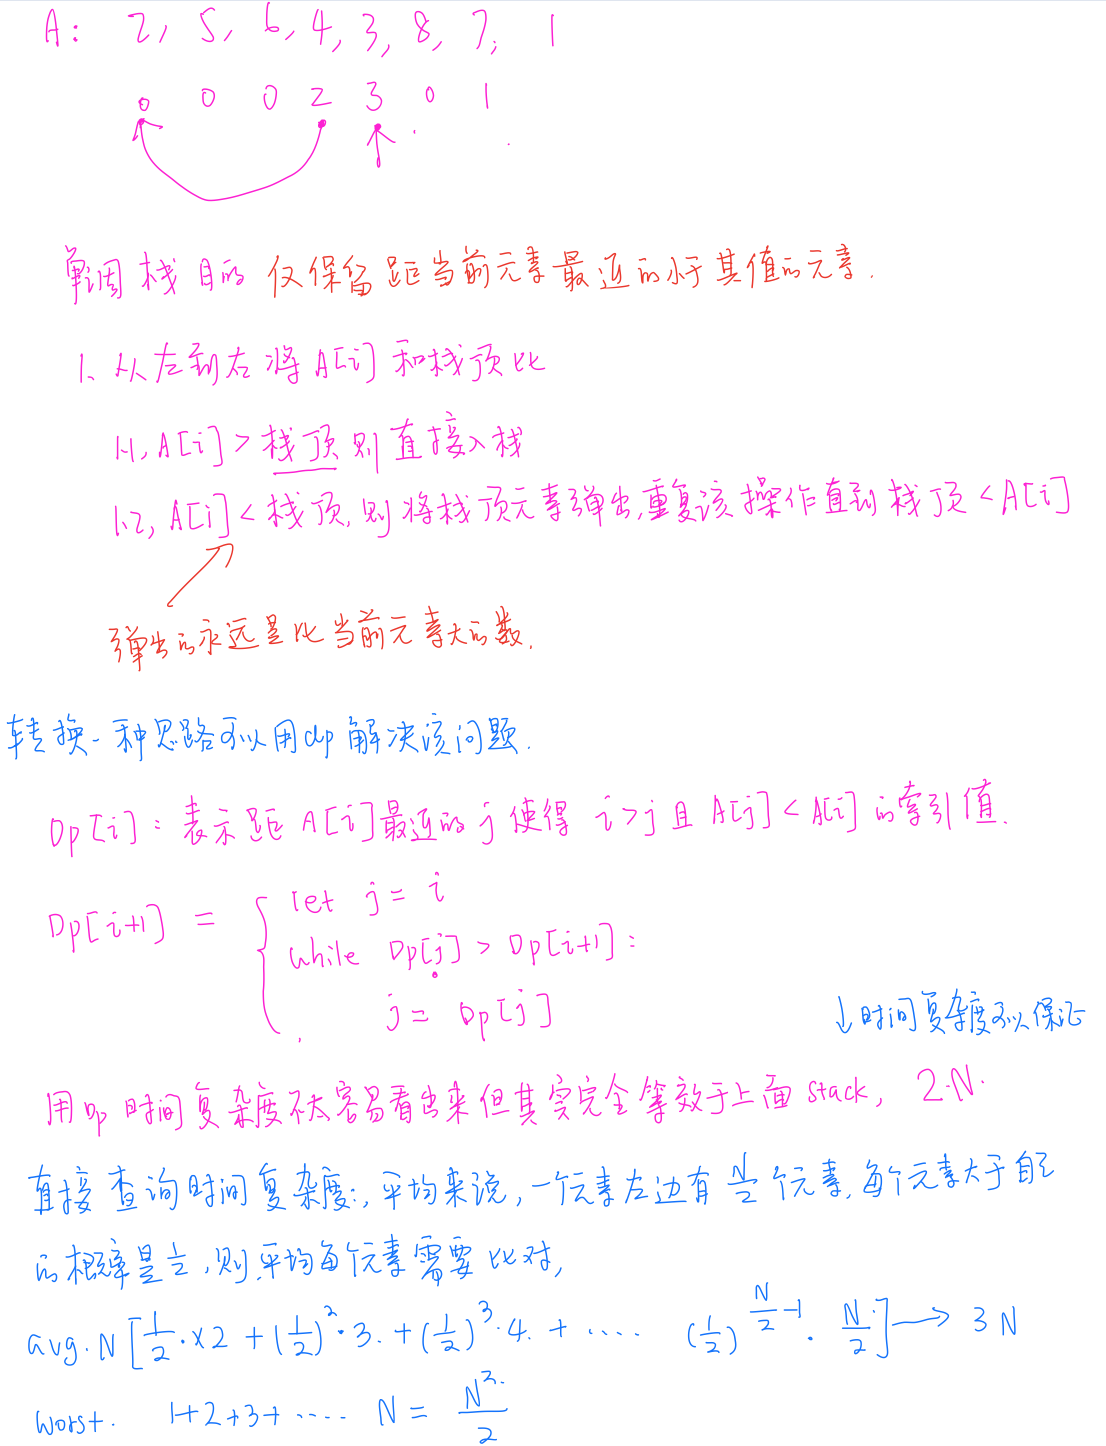 A: 2, 5, 6, 4, 3, 8, 7, 1
0 0 0 2 3 0 1
单调栈目的 仅保留距当前元素最近的小于其值的元素.
1、从左到右将A[i]和栈顶比
1.1, A[i] > 栈顶则直接入栈
1.2, A[i] < 栈顶,则将栈顶元素弹出,重复该操作直到栈顶 < A[i]
弹出的永远是比当前元素大的数.
转换一种思路可以用dp解决该问题.
Dp[i]: 表示距A[i]最近的j使得 i>j 且 A[j] < A[i] 的索引值.
Dp[i+1] = { let j = i
while Dp[j] > Dp[i+1]:
j = Dp[j]
↓时间复杂度可以保证
用Dp时间复杂度不太容易看出来但其实完全等效于上面stack, 2·N.
直接查询时间复杂度:, 平均来说, 一个元素左边有 N/2 个元素, 每个元素大于自己
的概率是1/2, 则平均每个元素需要比对,
avg. N [1/2 · x2 + (1/2)^2 · 3. + (1/2)^3 · 4. + ···· (1/2)^(N/2 - 1) · N/2] → 3N
Worst. 1+2+3+ ···· N = N^2/2